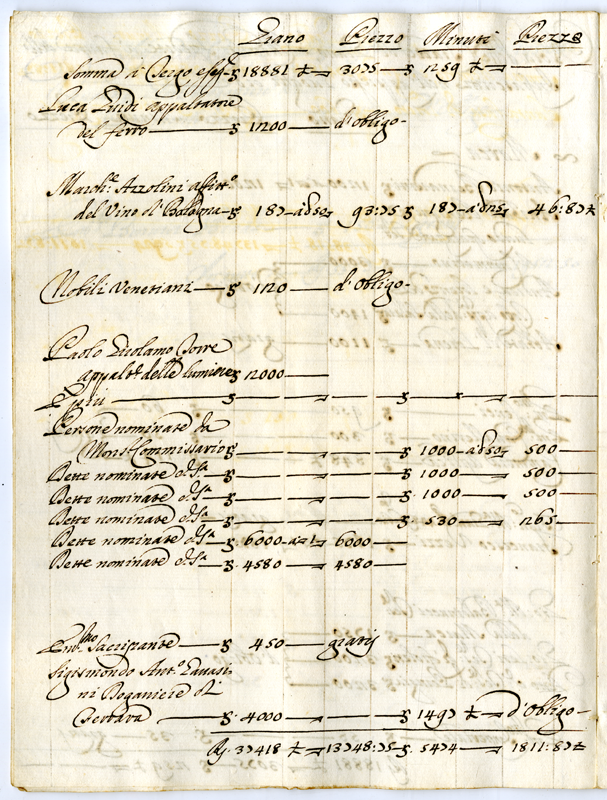 Grano Prezzo Minuti Prezzo
Somma à Tergo 18881 ½ 3075 1259 ½
Luca Guidi appaltatore
del ferro 1200 d'obligo
March.e Azzolini affitt.o
del Vino d' Bologna 187 93:75 187 46:87½
Nobili Venetiani 1120 d'obligo
Paolo Girolamo Torre
appalt.e delle lumiere 12000
Persone nominate da
Mons.r Commissario 1000 500
Dette nominate d.s.a 1000 500
Dette nominate d.s.a 1000 500
Dette nominate d.s.a 530 265
Dette nominate d.s.a 6000 6000
Dette nominate d.s.a 4580 4580
Em.mo Sacripante 450 gratis
Sigismondo Ant.o
ni Doganiere di
4000 1497 ½ d'obligo
37418 ½ 13748:75 5474 1811:87½